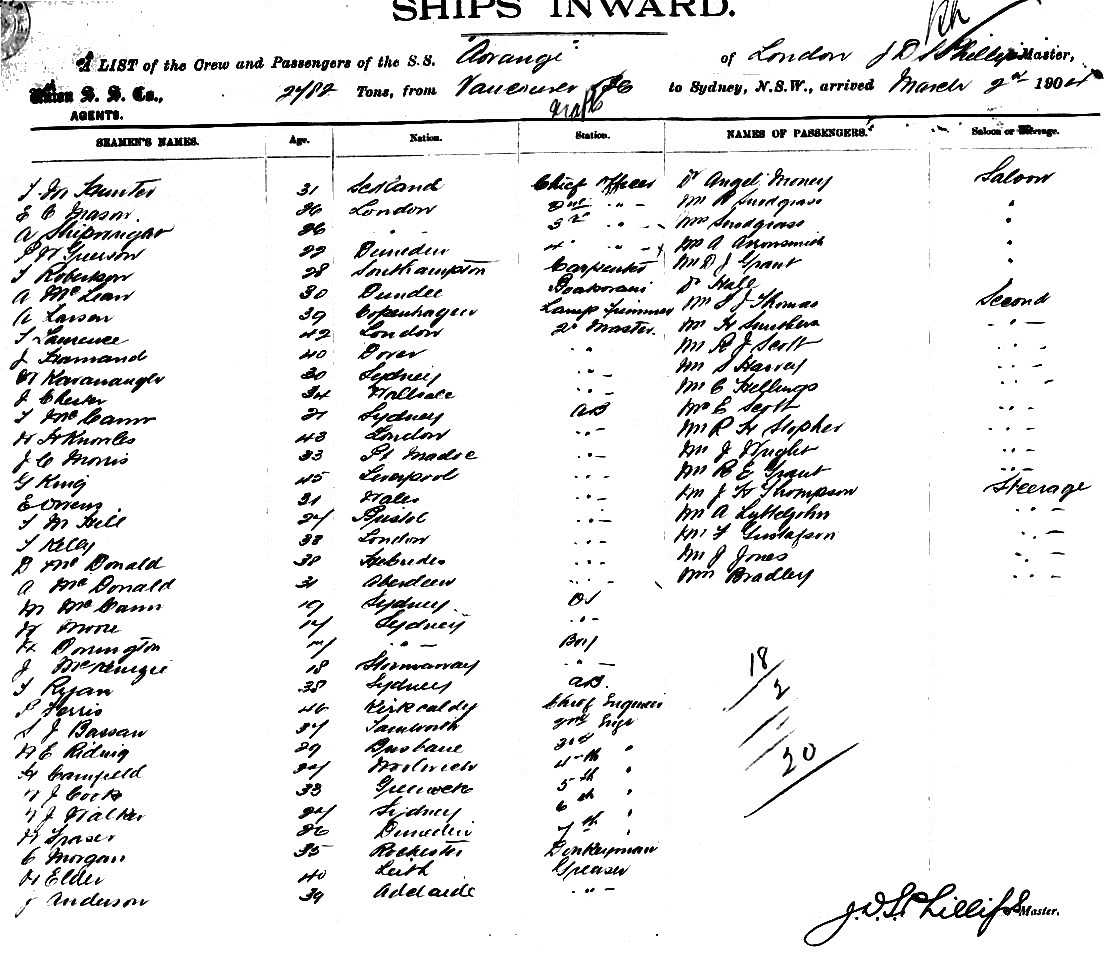 SHIPS INWARD.
A LIST of the Crew and Passengers of the S.S. "Aorangi" of London J D S Phillips Master,
Union S. S. Co., 2782 Tons, from Vancouver BC to Sydney, N.S.W., arrived March 2nd 190
AGENTS.
SEAMEN'S NAMES. Age. Nation. Station. NAMES OF PASSENGERS. Saloon or Steerage.
31 Scotland Chief Officer Dr Angel Money Saloon
E C Mason. 26 London 2nd " - Mr R Snodgrass "
A Shipwright 26 " - 3rd " - Mrs Snodgrass "
22 Dunedin 4th " - Mr A "
Robertson 28 Southampton Carpenter Mr D J Grant "
A McLean 30 Dundee Dr Hall
A Larsen 39 Copenhagen Lamp Trimmer Mr S J Thomas Second
Laurence 42 London Qr Master. Mr " -
J 40 Dover " - Mr R J Scott " -
Kavanaugh 30 Sydney " - Mr S Harvey
J 34 " - Mr C Hellings " -
McCann 21 Sydney AB Mr E Scott " -
H Knowles 43 London " - Mr R H Stephen " -
J C Morris 33 Pt " - Mr J Wright " -
G King 45 Liverpool " - Mr R E Grant " -
E Owens 31 Wales " - Mr J H Thompson Steerage
M Hill 27 Bristol " - Mr A Lyttlejohn " -
Kelly 38 London " - Mr F Gustafson " -
D McDonald 38 Hebrides " - Mr J Jones " -
A McDonald 31 Aberdeen " - Bradley " -
M McCann 19 Sydney OS
Moore 17 Sydney " -
H Dorrington 17 " - Boy
J McKenzie 18 Stornaway " -
Ryan 38 Sydney AB.
Ferris 46 Kirkcaldy Chief Engineer
S J Bassan 37 Tamworth 2nd Engr
E Ridwig 29 Brisbane 3rd "
H Cranfield 27 Woolwich 4th "
J Cook 33 Greenock 5th "
J Walker 27 Sydney 6th "
Fraser 26 Dunedin 7th "
C Morgan 35 Rochester Donkeyman
Elder 40 Leith Greaser
J Anderson 39 Adelaide " -
18
2
20
J.D.S. Phillips Master.